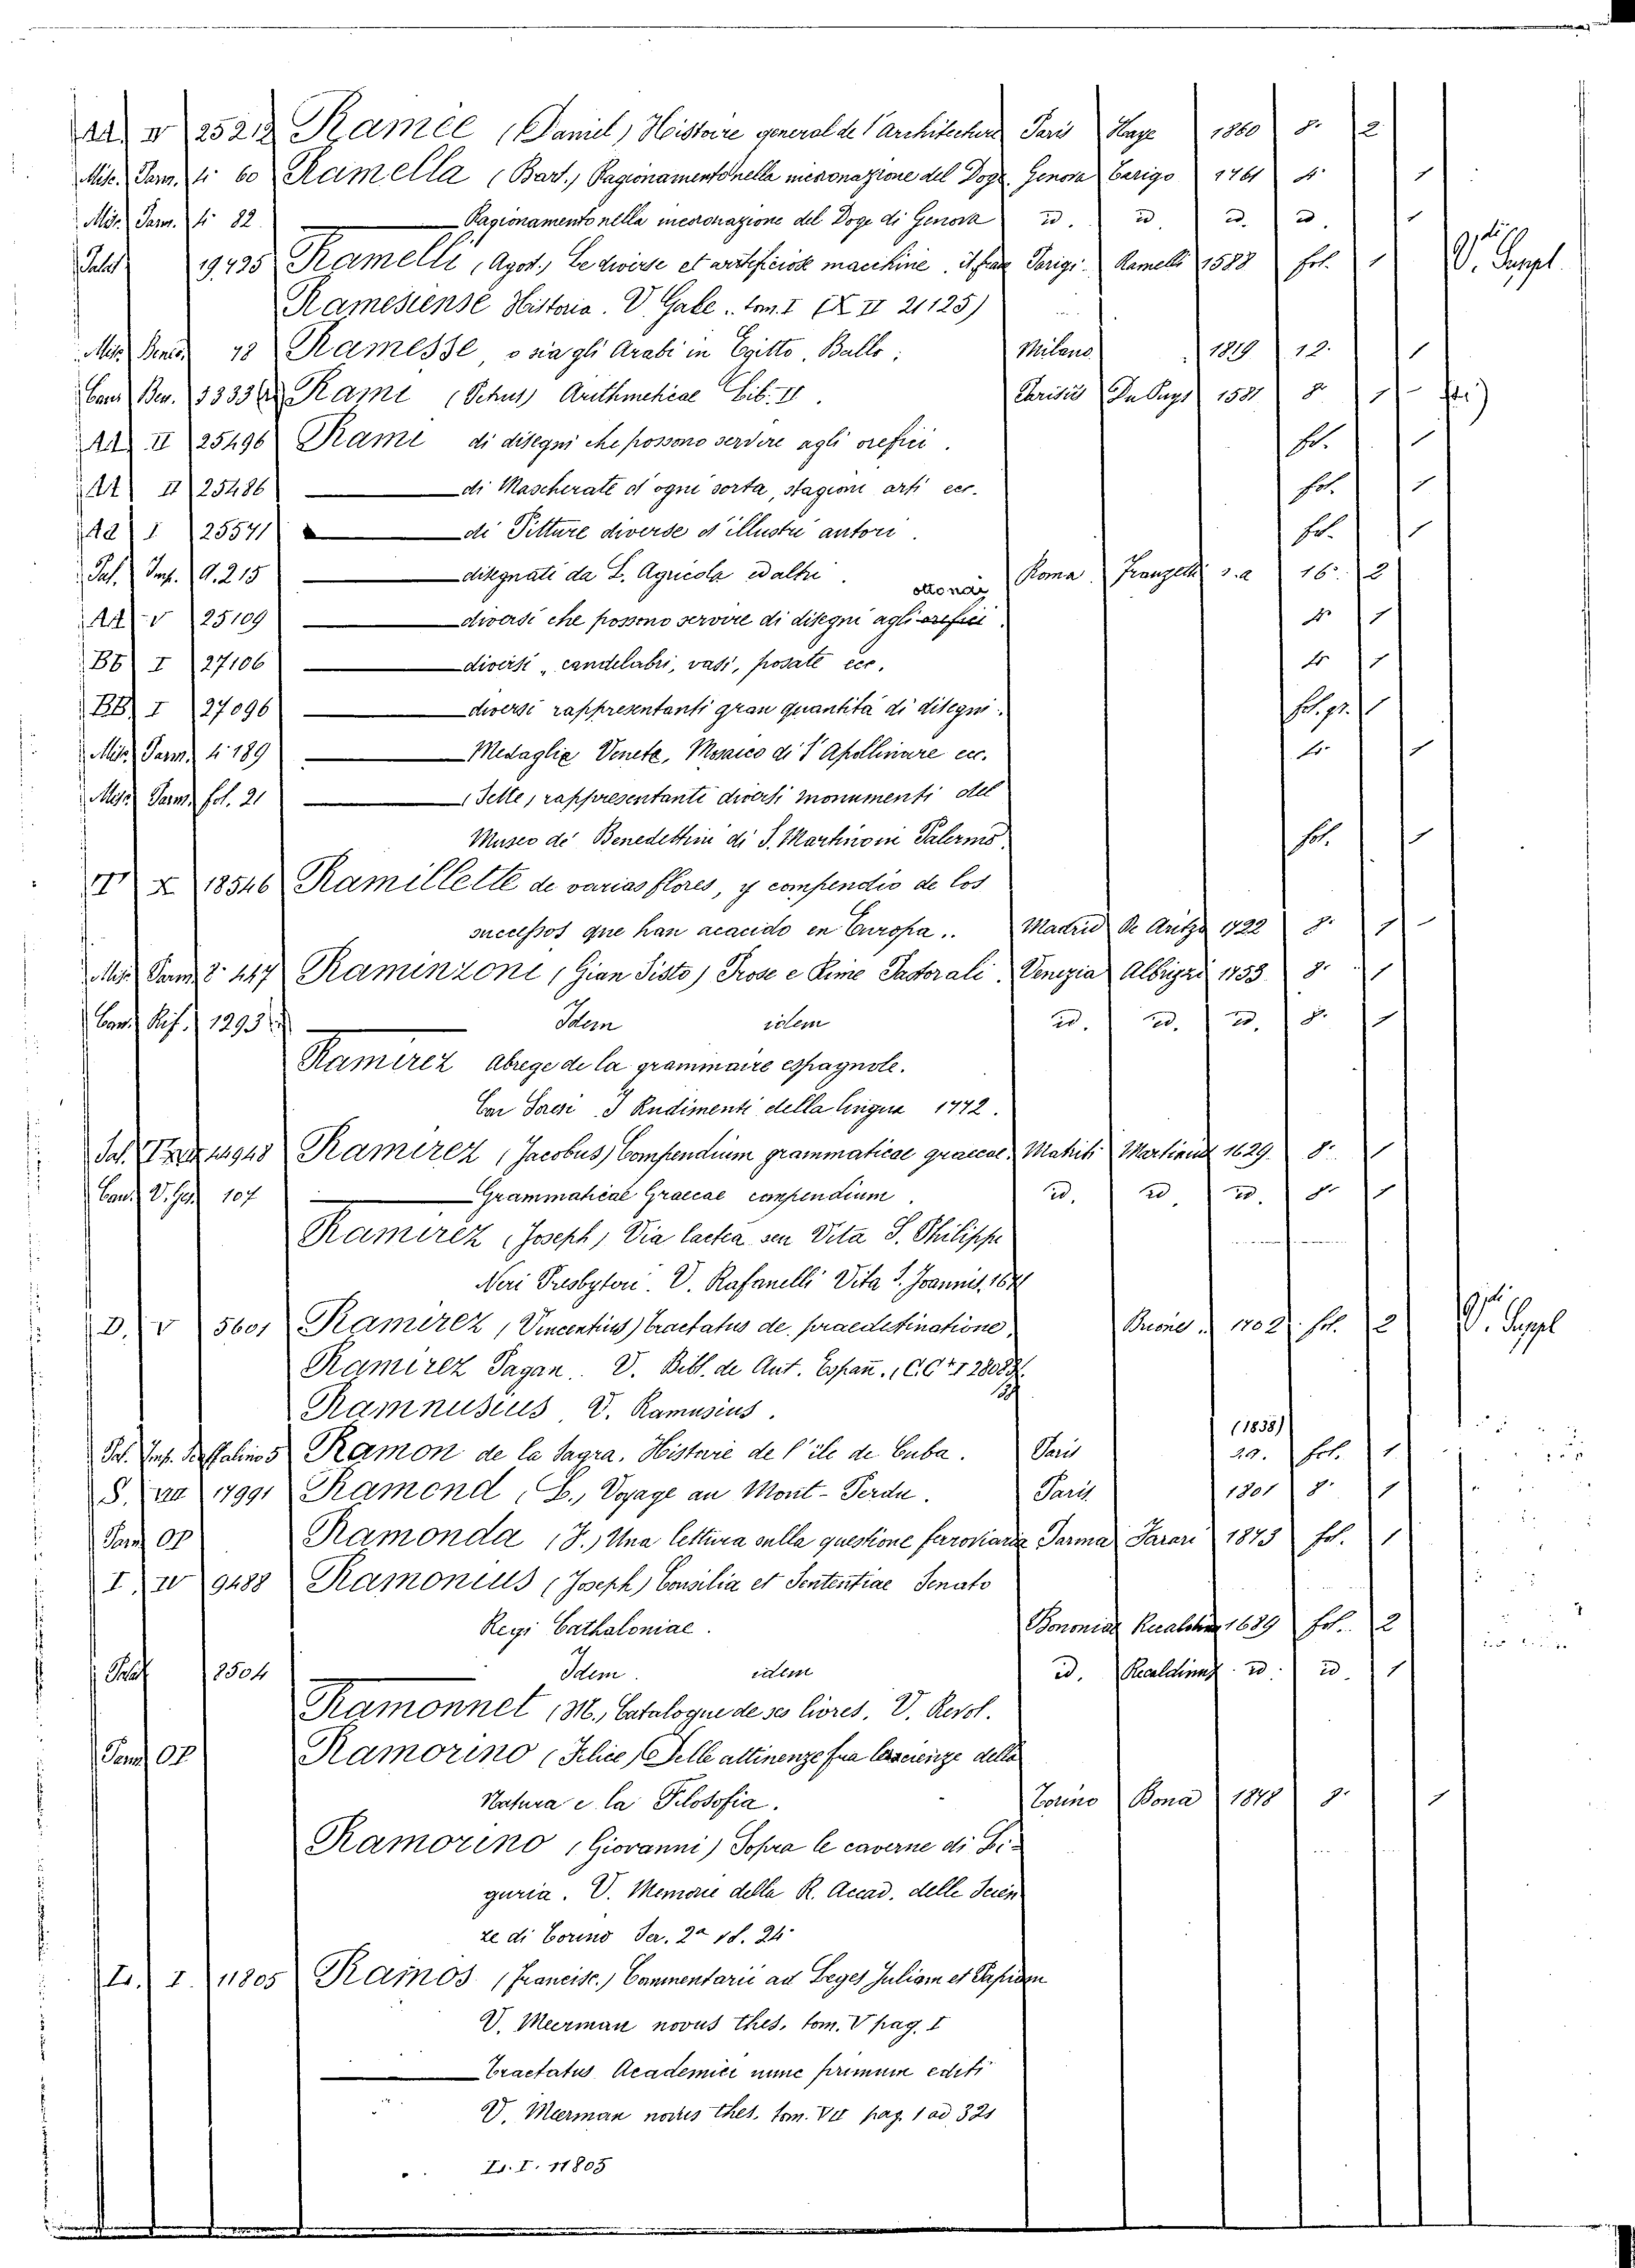 AA V 25212 Ramée (Daniel) Histoire general de l'architecture Paris Haye 1860 8° 2
Misc. Parm. 4° 60 Ramella (Bart.) Ragionamento nella incoronazione del Doge Genova Carigo 1761 4° 1
Misc. Parm. 4° 82 Ragionamento nella incoronazione del Doge di Genova id. id. id. id. 1
Palat 19435 Ramelli (Agos.) Le diverse et artificiose machine it fran Parigi Ramelli 1588 fol. 1 V. Suppl.
Ramesiense Historia. V. Gale .. tom. I (X II 21125)
Misc. Benis. 48 Ramesse o sia gli Arabi in Egitto. Ballo. Milano 1819 12° 1
Ben. 3333 Rami (Petrus) Arithmeticae Lib. II. Parisiis Du Puys 1581 8° 1
AA II 25496 Rami di disegni che possono servire agli orefici. fol. 1
AA II 25486 —— di Mascherate d'ogni sorta, stagioni arti ecc. fol. 1
AA I 25571 —— di Pitture diverse d'illustri autori. fol. 1
Pal. Imp. A. 215 —— disegnati da L. Agricola ed altri. Roma Franzetti s. a 16° 2
ottonai
AA V 25109 —— diversi che possono servire di disegni agli orefici 4° 1
BB I 27106 —— diversi, candelabri, vasi, posate ecc. 4° 1
BB I 27096 —— diversi rappresentanti gran quantità di disegni. fol. gr. 1
Misc. Parm. 4° 189 —— Medaglie Venete, Mosaico di S. Apollinare ecc. 4° 1
Misc. Parm. fol. 21 —— (Sette) rappresentanti diversi monumenti del
Museo de' Benedettini di S. Martino in Palermo. fol. 1
X 18546 Ramillette de varias flores, y compendio de los
successos que han acacido en Europa.. Madrid De Aritzo 1722 8° 1
Misc. Parm. 8° 447 Raminzoni (Gian Sisto) Prose e Rime Pastorali. Venezia Albrizzi 1733 8° 1
Rif. 1293 —— Idem idem id. id. id. 8° 1
Ramirez Abregé de la grammaire espagnole.
I Rudimenti della lingua 1772.
Pal. 14948 Ramirez (Jacobus) Compendium grammaticae graecae. Matriti Martinus 1629. 8° 1
107 —— Grammaticae Graecae compendium. id. id. id. 8° 1
Ramirez (Joseph) Via lactea seu Vita S. Philippi
Neri Presbyteri. V. Rafanelli Vita S. Joannis, 16
D. V 5601 Ramirez (Vincentius) Tractatus de praedestinatione. 1702 fol. 2 V. Suppl
Ramirez Pagan. V. Bibl. de Aut. Españ. (CC I 28083
Ramnusius V. Ramusius.
(1838)
Pal. Imp. 5 Ramon de la Sagra. Histoire de l'île de Cuba. Paris fol. 1
S. VIII 17991 Ramond (L.) Voyage au Mont-Perdu. Paris 1801 8° 1
Parm OP Ramonda (J.) Una lettura sulla questione ferroviaria Parma Ferrari 1873 fol. 1
I. IV 9488 Ramonius (Joseph) Consilia et Sententiae Senato
Regi Cathaloniae. Bononiae Recaldinus 1689 fol. 2
Palat 2504 —— Idem. idem id. Recaldinus id. id. 1
Ramonnet (M.) Catalogue de ses livres. V. Revol.
Parm OP Ramorino (Felice) Delle attinenze fra le scienze della
Natura e la Filosofia. Torino Bona 1878 8° 1
Ramorino (Giovanni) Sopra le caverne di Li-
guria. V. Memorie della R. Accad. delle Scien
ze di Torino Ser. 2a 18. 24
L. I 11805 Ramos (Francisc.) Commentarii ad Leges Juliam et Papiam
V. Meerman novus thes. tom. V pag. I
—— Tractatus Academici nunc primum editi
V. Meerman novus thes. tom. VII pag. 1 ad 321
L. I. 11805